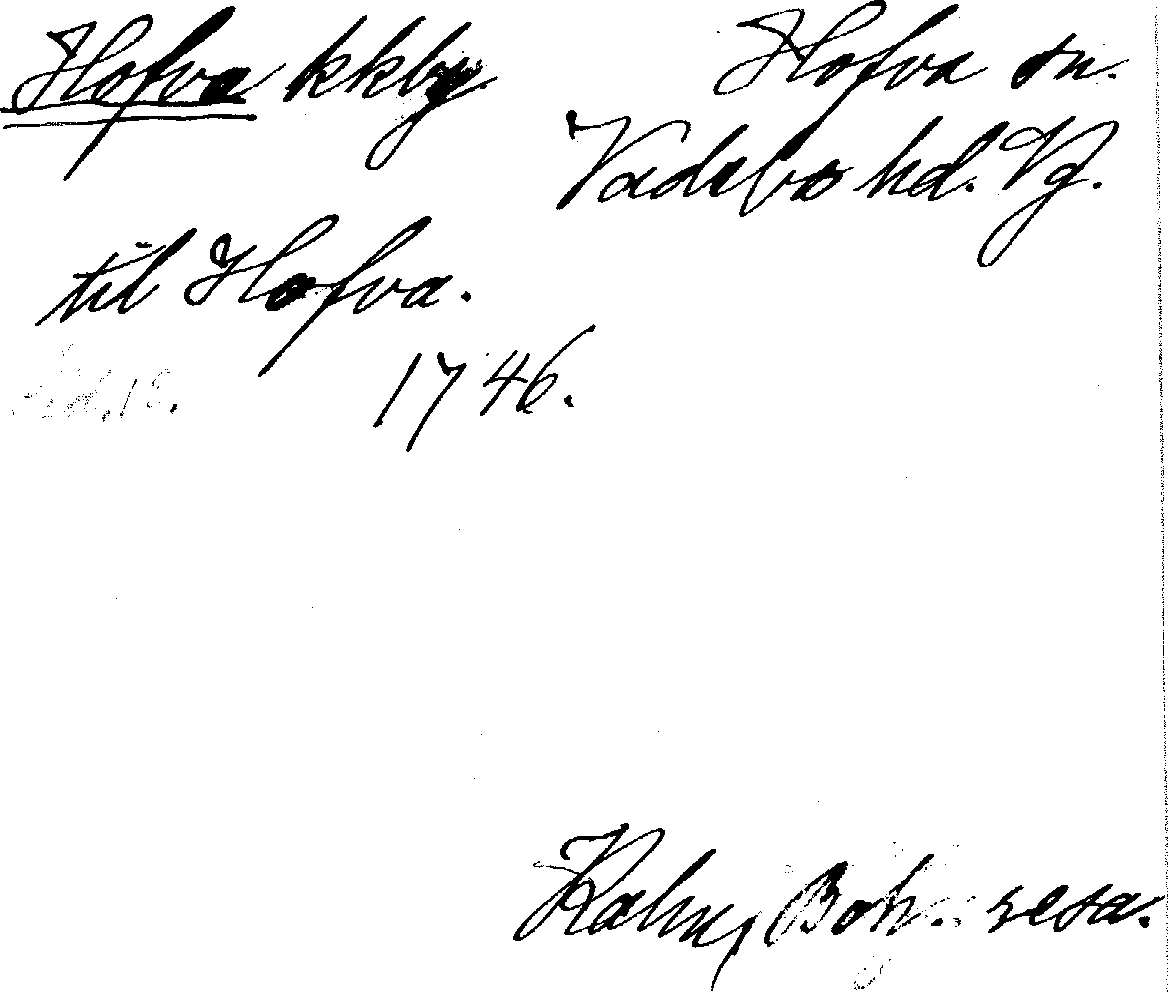 Hofva kkby
Hofva sn.
Vadsbo hd. Vg.
til Hofva.
Sid. 18.
1746.
Kalm, Boh. resa.